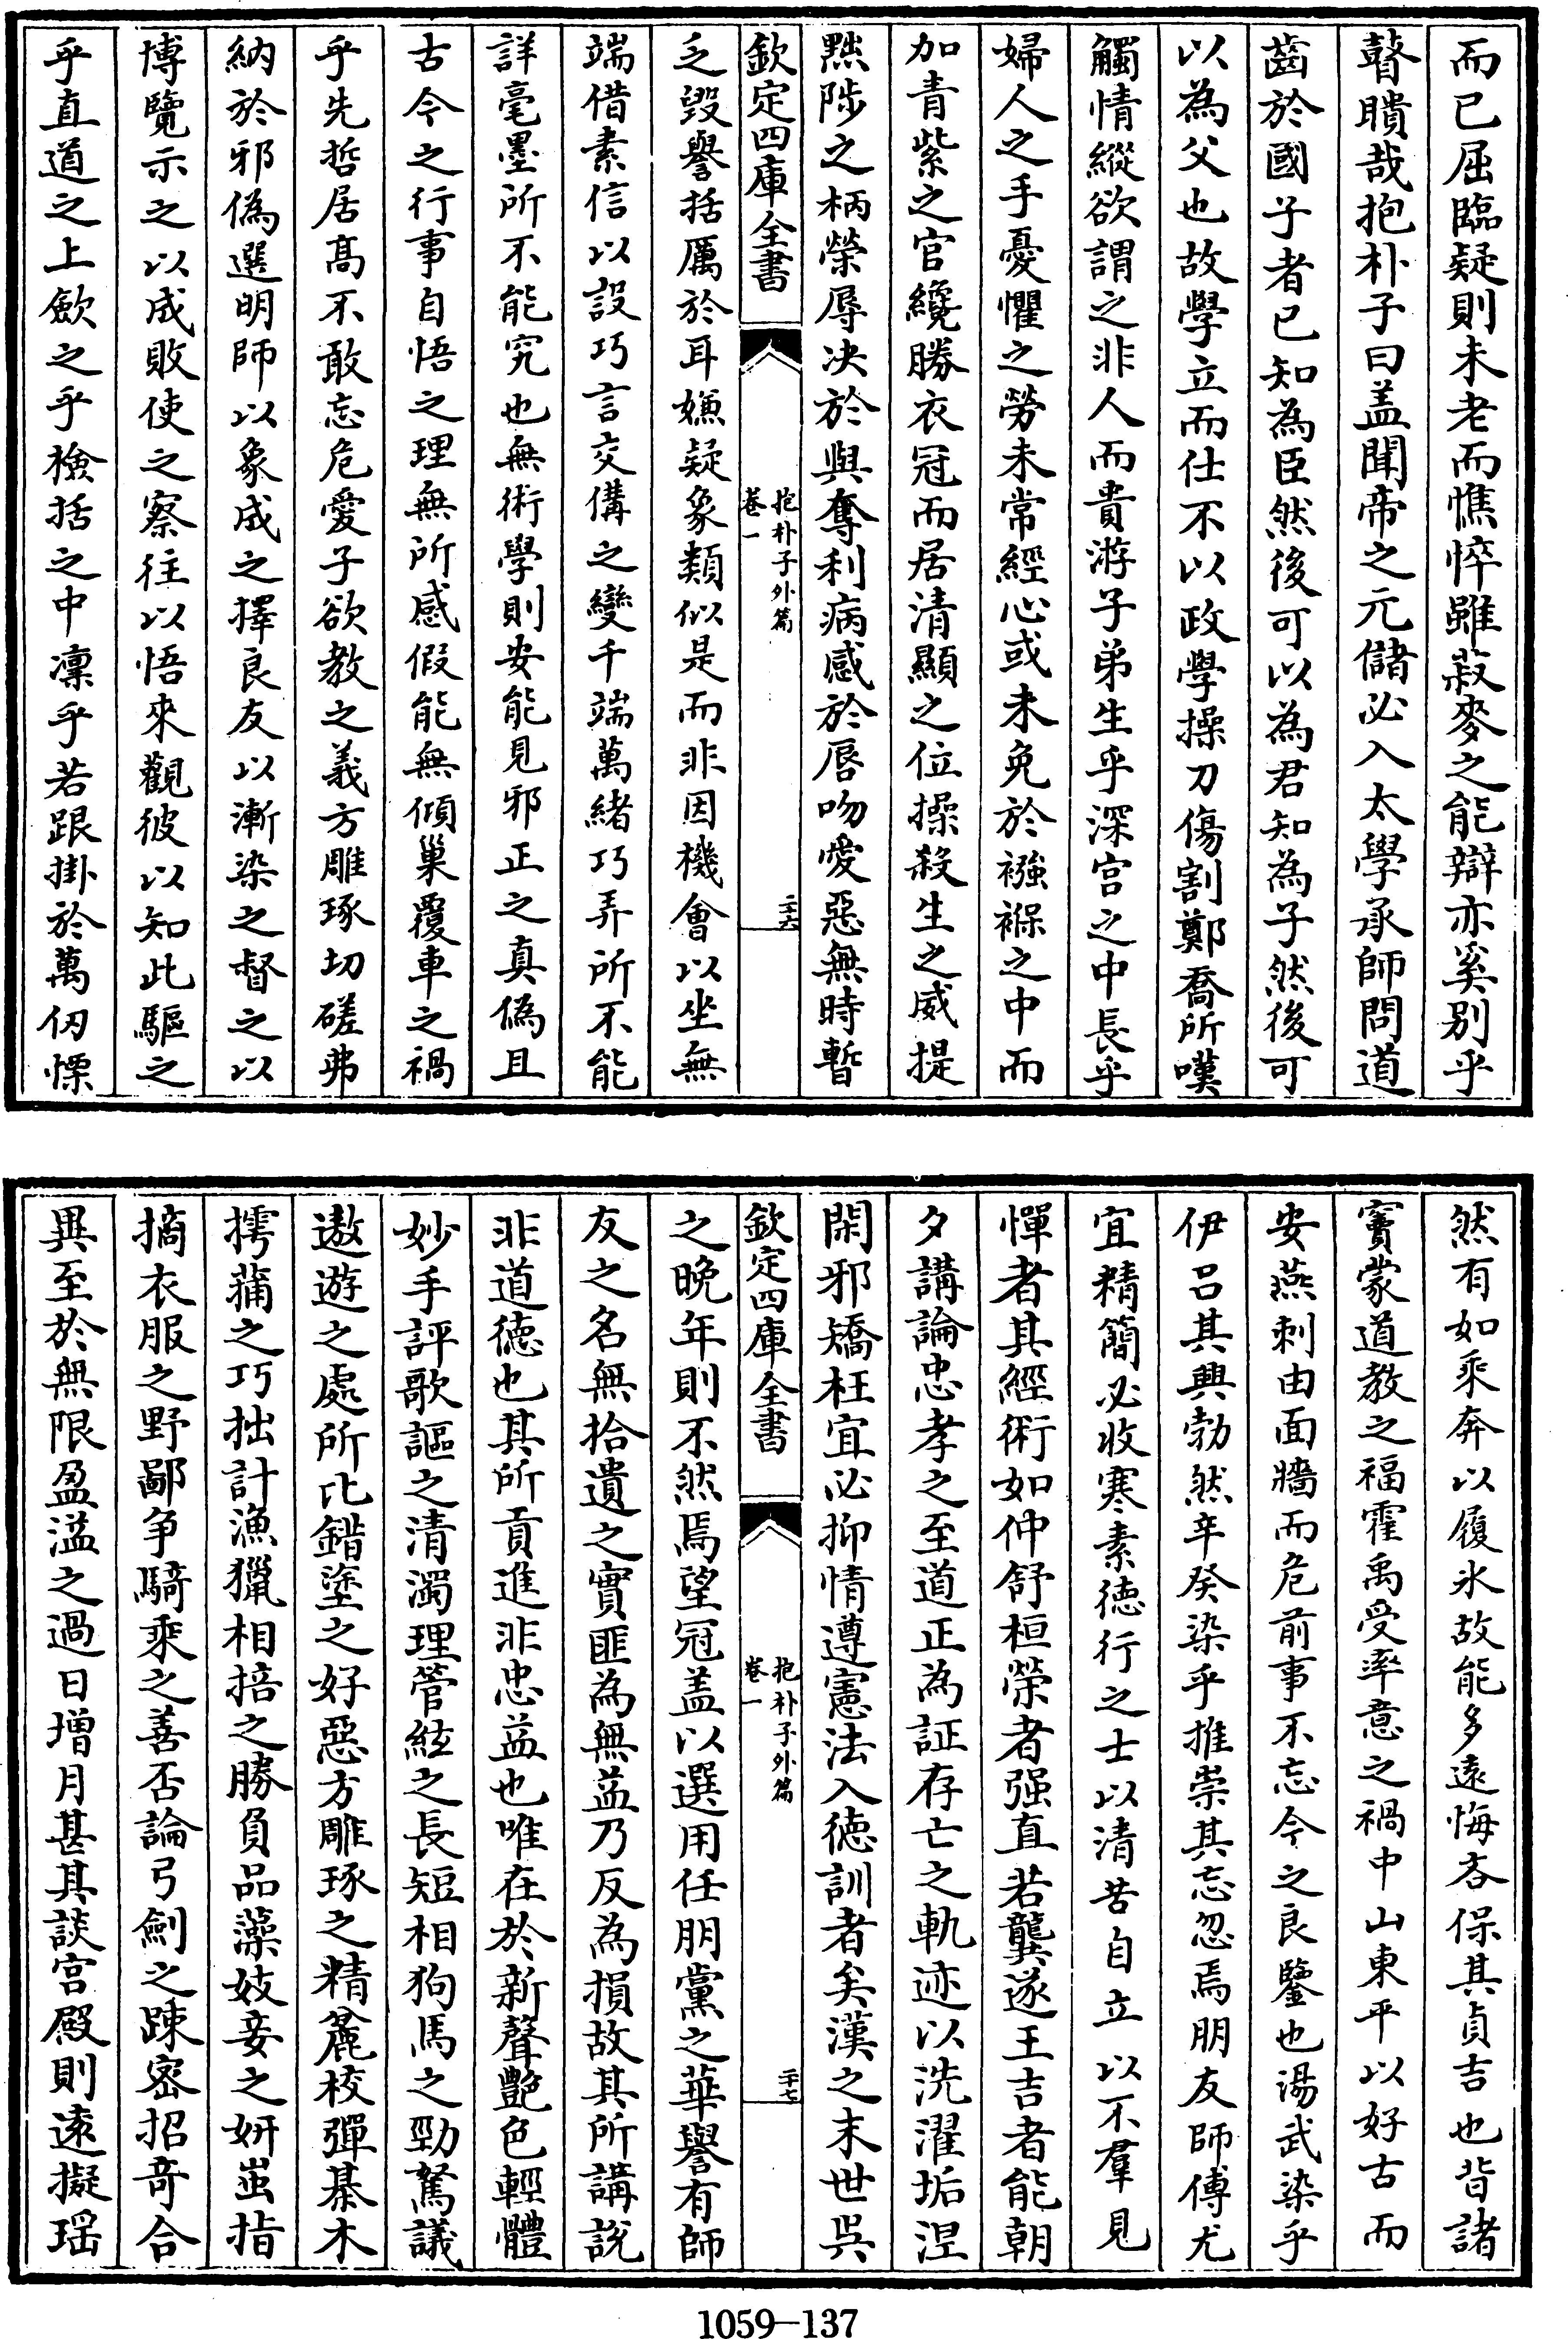 而已屈臨疑則未老而憔悴雖菽麥之能辯亦奚别乎
瞽瞶哉抱朴子曰盖聞帝之元儲必入太學承師問道
齒於國子者已知為臣然後可以為君知為子然後可
以為父也故學立而仕不以政學操刀傷割鄭喬所嘆
觸情縱欲謂之非人而貴游子弟生乎深宫之中長乎
婦人之手憂懼之勞未常經心或未免於襁褓之中而
加青紫之官纔勝衣冠而居清顯之位操殺生之威提
黜陟之柄榮辱决於與奪利病感於唇吻愛惡無時暫
欽定四庫全書
抱朴子外篇
卷一
二十六
乏毀譽括厲於耳嫌疑象類似是而非因機會以生無
端借素信以設巧言交構之變千端萬緒巧弄所不能
詳毫墨所不能究也無術學則安能見邪正之真偽且
古今之行事自悟之理無所感假能無傾巢覆車之禍
乎先哲居高不敢忘危愛子欲教之義方雕琢切磋弗
納於邪偽選明師以象成之擇良友以漸染之督之以
博覽示之以成敗使之察往以悟來觀彼以知此驅之
乎直道之上歛之乎檢括之中凜乎若跟掛於萬仞慄
然有如乘奔以履氷故能多遠悔吝保其貞吉也昔諸
竇蒙道教之福霍禹受率意之禍中山東平以好古而
安燕刺由面牆而危前事不忘今之良鑒也湯武染乎
伊吕其興勃然辛癸染乎推崇其忘忽焉朋友師傅尤
宜精簡必收寒素德行之士以清苦自立以不羣見
憚者其經術如仲舒桓榮者强直若龔遂王吉者能朝
夕講論忠孝之至道正為証存亡之軌迹以洗濯垢涅
閑邪矯枉宜必抑情遵憲法入德訓者矣漢之末世吳
欽定四庫全書
抱朴子外篇
卷一
二十七
之晚年則不然焉望冠盖以選用任朋黨之華譽有師
友之名無拾遺之實匪為無益乃反為損故其所講說
非道德也其所貢進非忠益也唯在於新聲艷色輕體
妙手評歌謳之清濁理管絃之長短相狗馬之勁駑議
遨遊之處所比錯塗之好惡方雕琢之精麄校彈棊木
摴蒱之巧拙計漁獵相掊之勝負品藻妓妾之妍蚩指
摘衣服之野鄙争騎乘之善否論弓劍之踈密招竒合
異至於無限盈溢之過日增月甚其談宫殿則遠擬瑶
1059—137